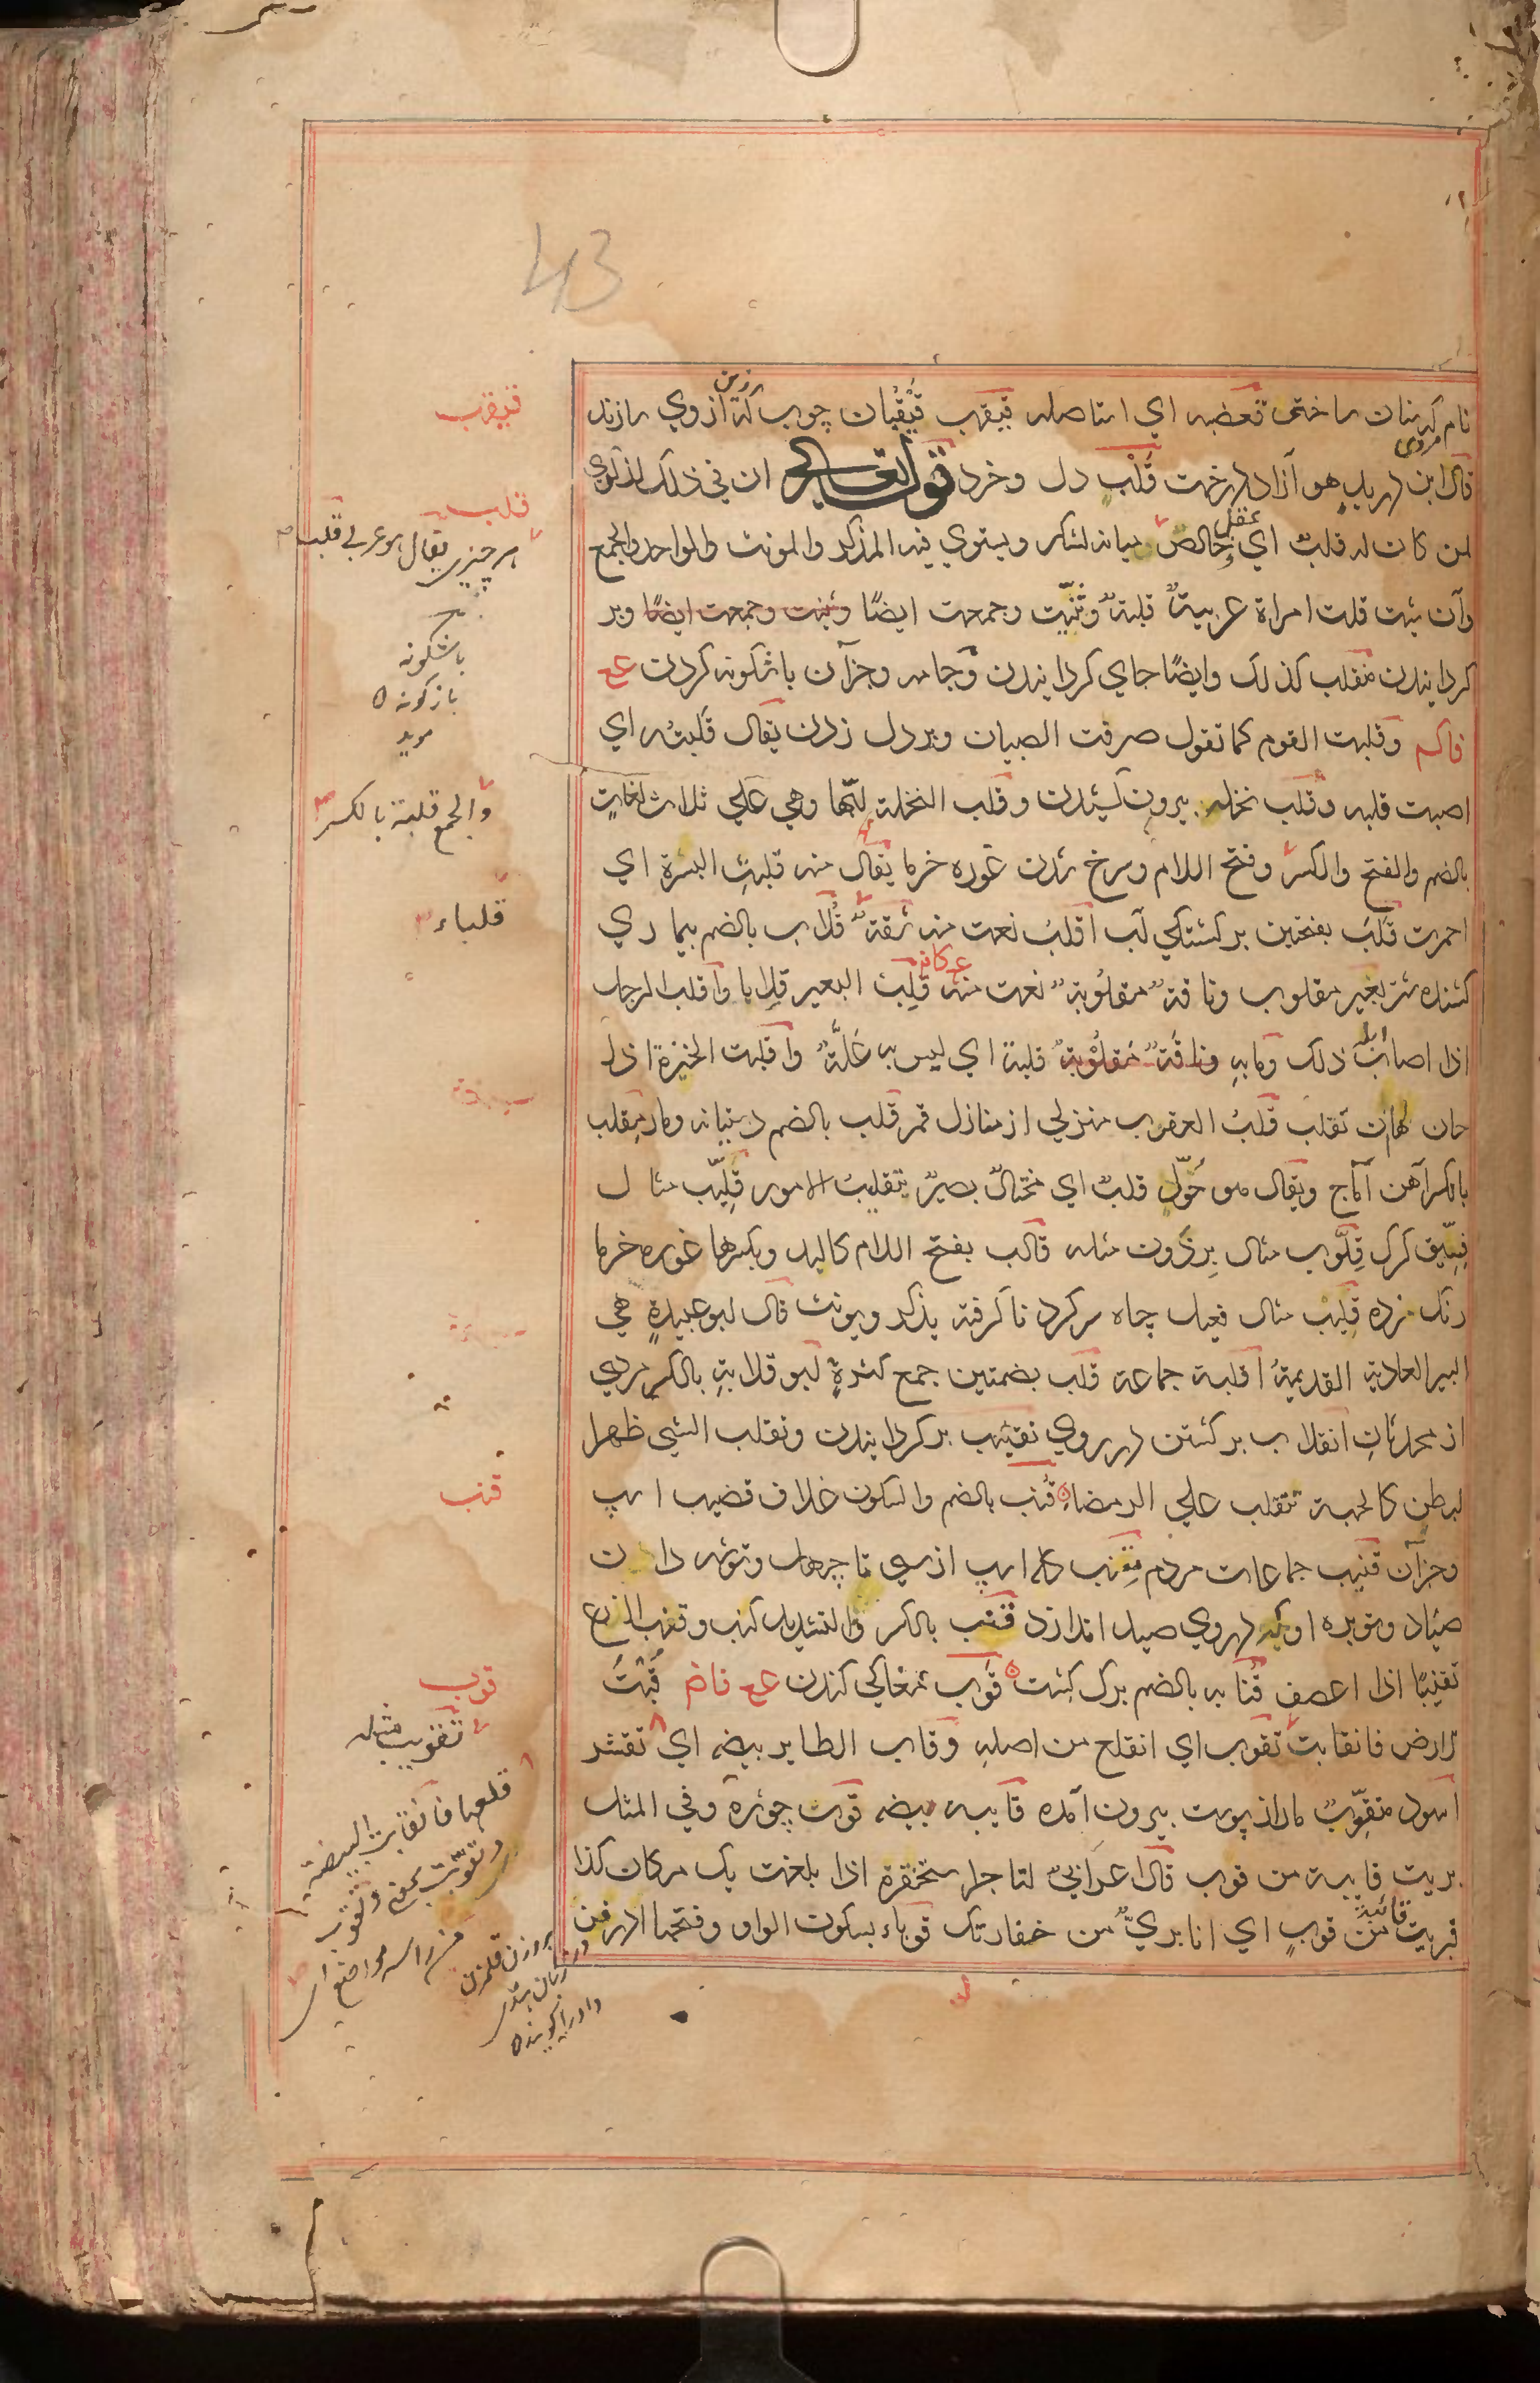 43
نام كه سنان ساختى قعضبه اي استاصله قيقب قيقبان چوب كه ازوي سازند
زين
مروى
قال ابن دريد هو آزاد درخت قلب دل و خرد قوله تعالى ان في ذلك لذكرى
لمن كان له قلب اي عقل وخالص ميانه لشكر ويستوي فيه المذكر والمونث والواحد والجمع
وان شئت قلت امراة عربية قلبة وثنيت وجمعت ايضا وثنيت وجمعت ايضا وبر
كردانيدن منقلب كذلك وايضا جاي كردانيدن وجامه وجزآن باشكونه كردن ع ع
فاكم وقلبت القوم كما تقول صرفت الصبيان وبر دل زدن يقال قلبته اي
اصبت قلبه وقلب نخله بيرون كشيدن وقلب النخلة لبها وهي علي ثلاث لغات
بالضم والفتح والكسر وفتح اللام وسرخ شدن غوره خرما يقال منه قلبت البسرة اي
احمرت قلب بفتحتين بركشتكي لب اقلب نعت منه شفة قلاب بالضم بيماري
كشنده شتر بعير مقلوب وناقة مقلوبة نعت منه قلب البعير قلابا واقلب الرجل
اذا اصاب ابله ذلك وما به وناقة مقلوبة قلبة اي ليس به علة واقلبت الخبزة اذا
حان لها ان تقلب قلب العقرب منزلي از منازل قمر قلب بالضم دستيانه ومار مقلب
بالكسر آهن آماج ويقال هو حول قلب اي محتال بصير بتقليب الامور قليب مثال
فسيق كرك قلوب مثال برذون مثله قالب بفتح اللام كالبد وبكسرها غوره خرما
رنك زده قليب مثال فعيل چاه سركرد ناكرفته يذكر ويونث قال ابو عبيدة هي
البير العادية القديمة اقلبة جماعة قلب بضمتين جمع كثرة ابو قلابة بالكسر مردي
از محدثان انقلاب بركشتن در روي تقليب بركردانيدن وتقلب الشي ظهرا
لبطن كالحية تتقلب علي الرمضاء قنب بالضم والسكون غلاف قضيب اسپ
وجزآن قنيب جماعات مردم مقنب كله اسپ از سي تا چهل وتوشه دان
صياد وتوبره او كه دروي صيد اندازد قنب بالكسر والتشديد كنب وقنب الزرع
تقنيبا اذا اعصف قنابه بالضم برك كشت قوب مغاكي كندن ع ع فاض قبت
الارض فانقابت تقوب اي انقلع من اصله وقاب الطاير بيضه اي تقشر
اسود متقوب مار از پوست بيرون آمده قايبه بيضه قوب چوزه وفي المثل
بريت قايبة من قوب قال اعرابي لتاجر استخفره اذا بلغت بك مكان كذا
فبريت قائبة من قوب اي انا بري من خفارتك قوباء بسكون الواو وفتحها ادرفن
قيقب
قلب
هر چيزى يقال هو عربي قلب
باشكونه
بازكونه
مويد
والجمع قلبة بالكسر
قلباء
قنب
قوب
تقويب مثله
قلعها فانقابت البيضة
وتقوبت بمعنى وتقوب
من راسه مواضع اي
بروزن قلمزن
در زبان هندى
داد را كويند